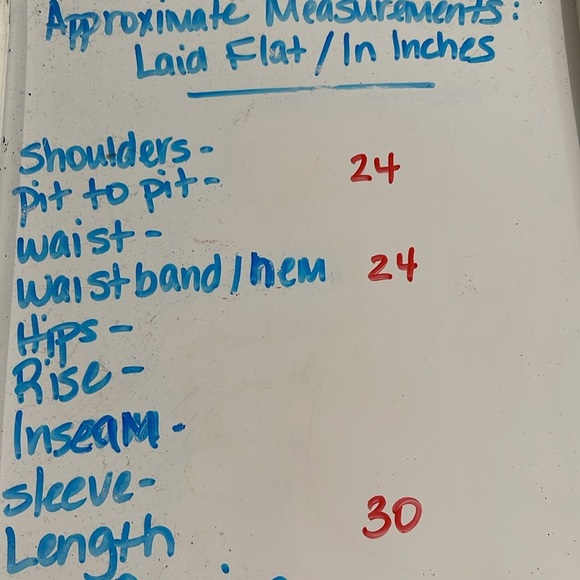 Approximate Measurements:
Laid Flat / In Inches
Shoulders -
Pit to pit - 24
waist -
waistband / hem 24
Hips -
Rise -
Inseam -
sleeve -
Length 30